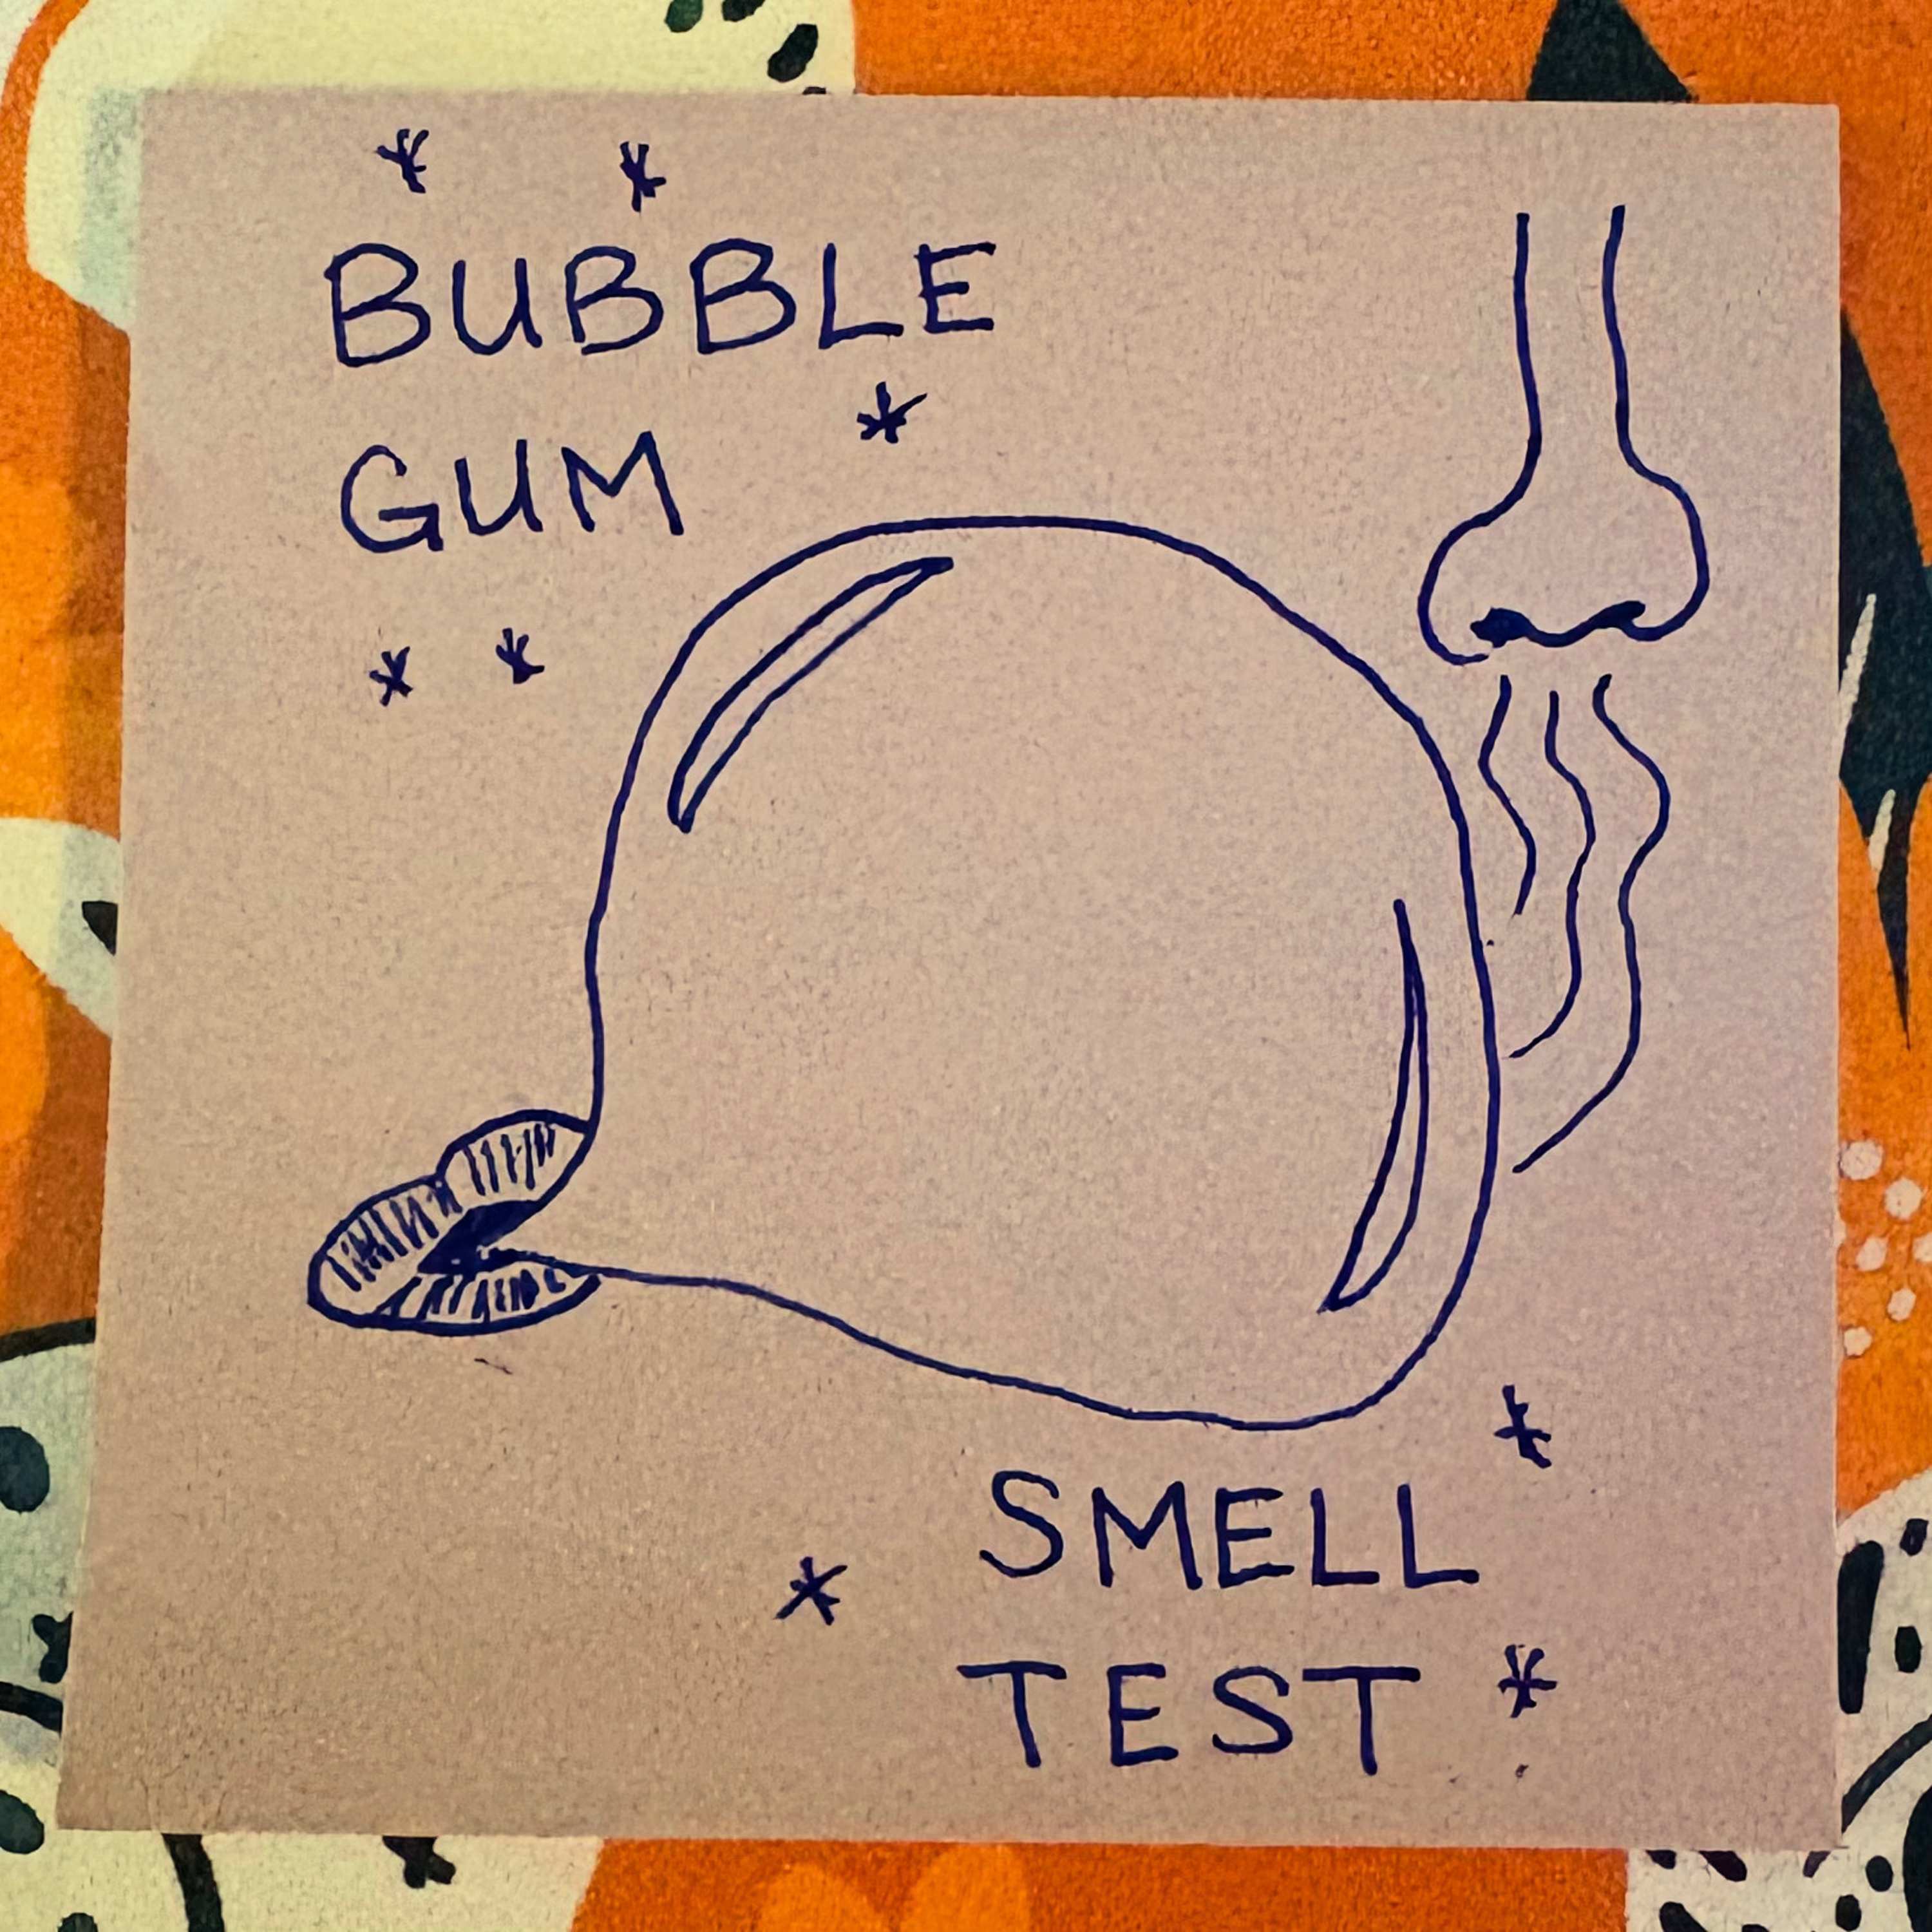 BUBBLE
GUM
SMELL
TEST